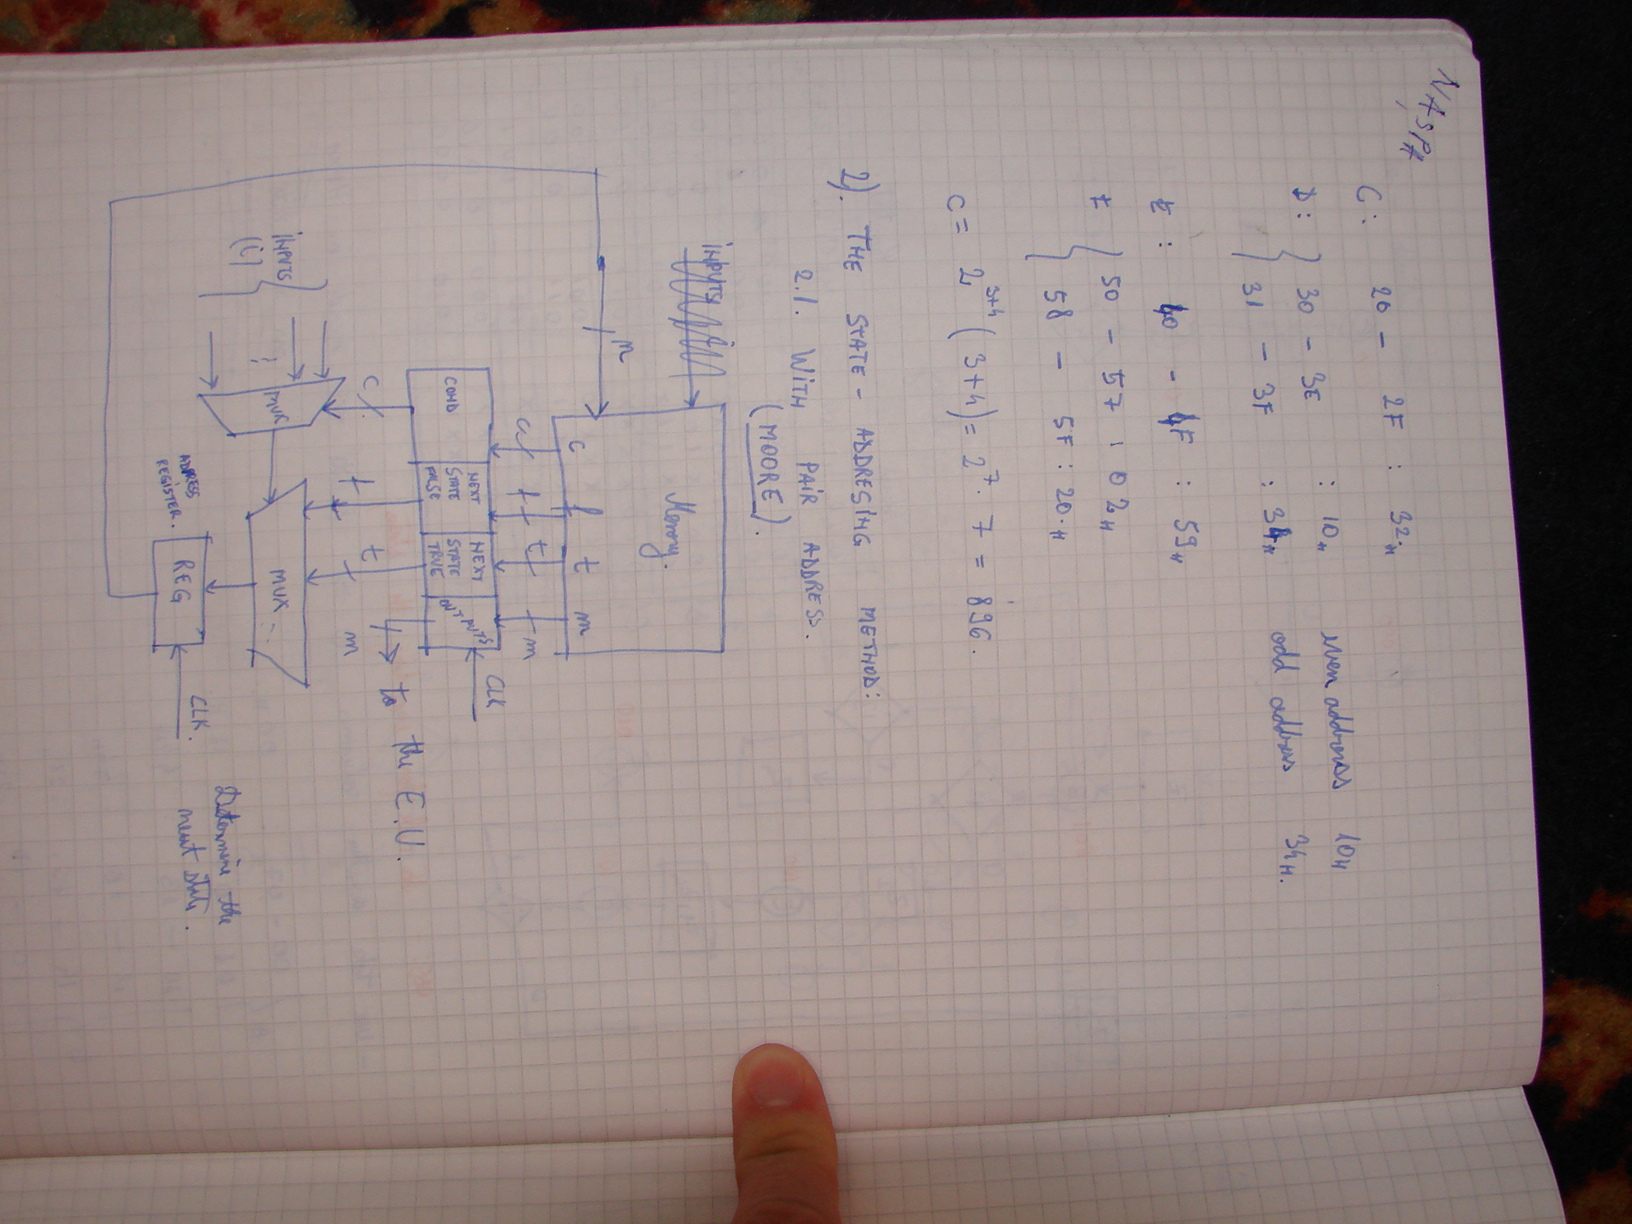 C: 20 - 2F : 32H
D: } 30 - 3E : 10H even address 10H
31 - 3F : 34H odd address 34H.
E: 40 - 4F : 59H
F } 50 - 57 : 02H
58 - 5F : 20H
C = 2^3+4 (3+4) = 2^7 · 7 = 896.
2). THE STATE - ADDRESING METHOD:
2.1. WITH PAIR ADDRESS.
(MOORE).
INPUTS
Memory.
m
C f t m
f t m
CLK
COND
NEXT STATE FALSE
NEXT STATE TRUE
OUTPUTS
C
f t m
to the E.U.
INPUTS
(i)
MUX
MUX
ADDRESS REGISTER.
REG
CLK.
Determine the
next state.